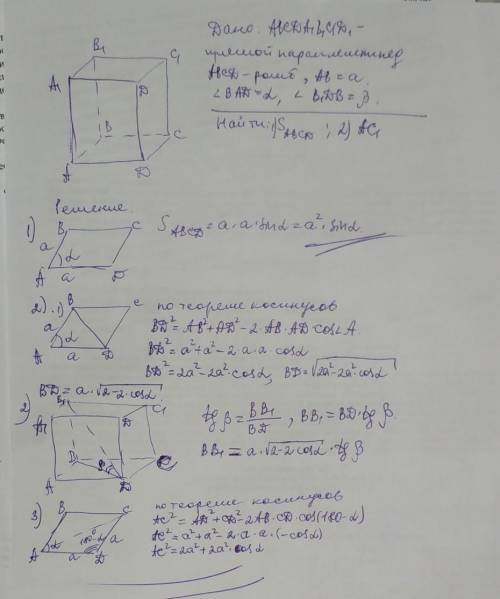 Дано: ABCDA1B1C1D1 -
прямой параллелепипед
ABCD - ромб, AB = a.
∠BAD = α, ∠B1DB = β.
Найти: 1) S ABCD ; 2) AC1
B1
C1
A1
D
B
C
A
D
Решение.
1)
B
C
a
α
A
a
D
S ABCD = a·a·sinα = a²·sinα
2).1)
B
C
a
α
A
a
D
по теореме косинусов
BD² = AB² + AD² - 2·AB·AD·cos∠A.
BD² = a² + a² - 2·a·a·cosα
BD² = 2a² - 2a²·cosα, BD = √2a² - 2a²·cosα
BD = a·√2-2·cosα
2)
B1
C1
A1
D
A
D
C
tg β = BB1/BD, BB1 = BD·tg β.
BB1 = a·√2-2·cosα·tg β
3)
B
C
a
α
180-α
a
A
a
D
по теореме косинусов
AC² = AD² + CD² - 2AB·CD·cos(180-α)
AC² = a² + a² - 2·a·a·(-cosα)
AC² = 2a² + 2a²·cosα